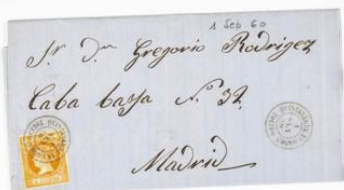 1 feb 60
Sr. Dn. Gregorio Rodrigez
Caba bassa Nº 32
Madrid